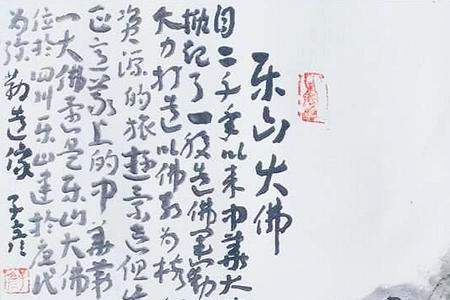 乐山大佛
自二千年以来中华大
掀起了一股造佛黑勒
大力打造以佛教为核
资源的旅游景区但
正意义上的中华第
一大佛还是乐山大佛
位於四川乐山建於唐代
为弥勒造像